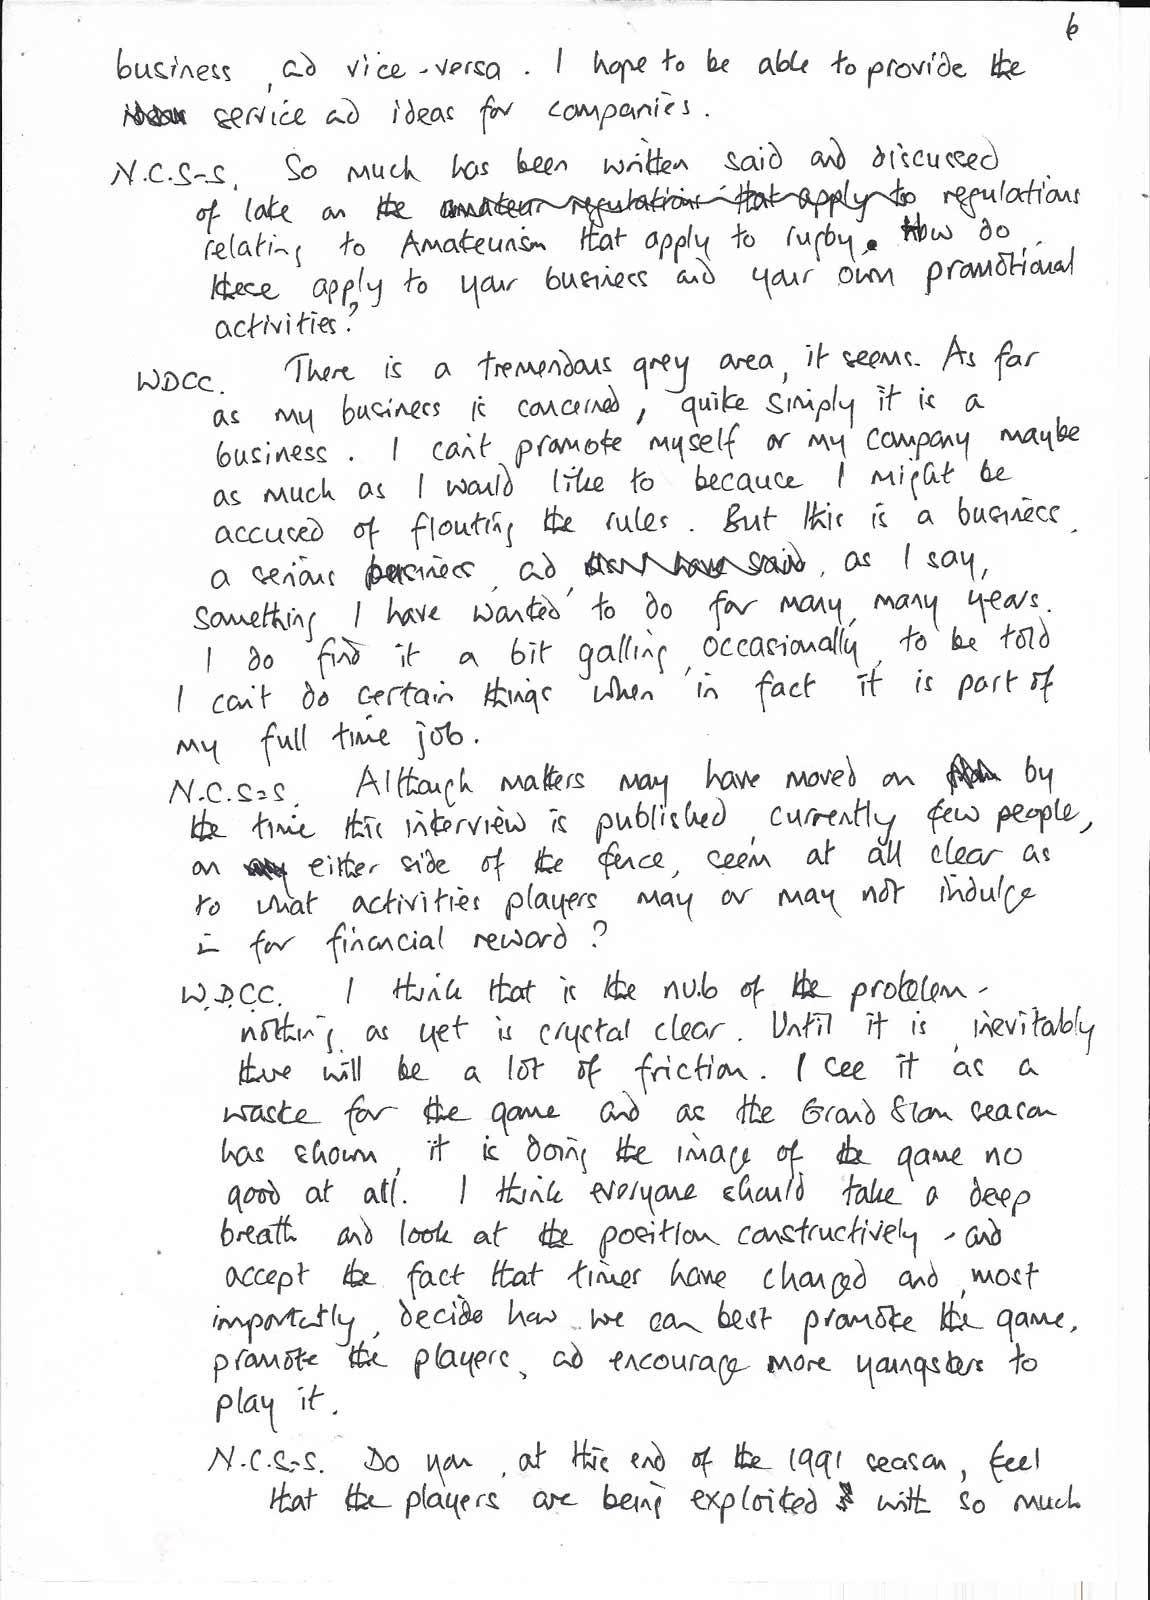 6
business, ad vice-versa. I hope to be able to provide the
service ad ideas for companies.
N.C.S-S. So much has been written said and discussed
of late on the amateur regulations that apply to regulations
relating to Amateurism that apply to rugby. How do
these apply to your business and your own promotional
activities?
WDCC. There is a tremendous grey area, it seems. As far
as my business is concerned, quite simply it is a
business. I can't promote myself or my company maybe
as much as I would like to because I might be
accused of flouting the rules. But this is a business,
a serious business, ad, as I have said, as I say,
something I have wanted to do for many, many years.
I do find it a bit galling, occasionally, to be told
I can't do certain things when in fact it is part of
my full time job.
N.C.S-S. Although matters may have moved on by
the time this interview is published, currently few people,
on either side of the fence, seem at all clear as
to what activities players may or may not indulge
in for financial reward?
W.D.C.C. I think that is the nub of the problem -
nothing as yet is crystal clear. Until it is, inevitably
there will be a lot of friction. I see it as a
waste for the game and as the Grand Slam season
has shown, it is doing the image of the game no
good at all. I think everyone should take a deep
breath and look at the position constructively - and
accept the fact that times have changed and, most
importantly, decide how we can best promote the game,
promote the players, ad encourage more youngsters to
play it.
N.C.S-S. Do you, at this end of the 1991 season, feel
that the players are being exploited with so much